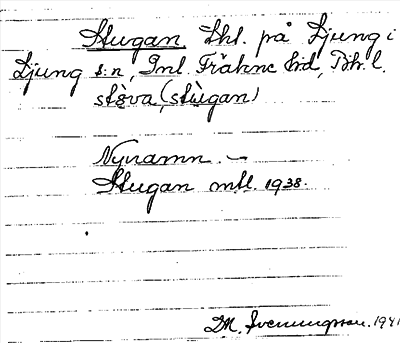 Stugan. Lht. på Ljung i
Ljung s:n, Inl. Fräkne hd, Boh. l.
stöva (stùgan)
Nynamn. –
Stugan mtl. 1938.
M. Svenungsson. 1941